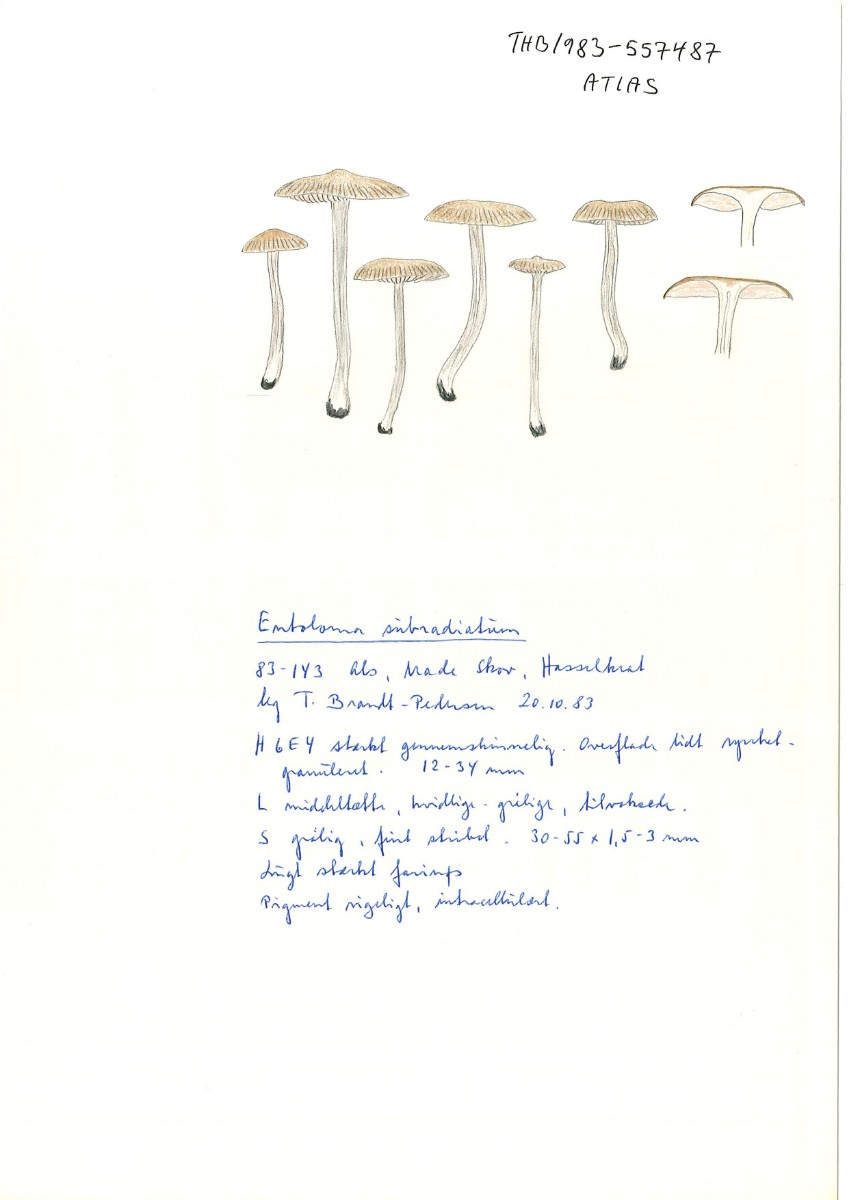 THB1983-557487
ATLAS
Entoloma subradiatum
83-143 Als, Made Skov, Hasselkrat
leg T. Brandt-Pedersen 20.10.83
H 6E4 stærkt gennemskinnelig. Overflade lidt rynket-
granuleret. 12-34 mm
L middeltætte, hvidlige-grålige, tilvoksede.
S grålig, fint stribet. 30-55 x 1,5-3 mm
Lugt stærkt
Pigment rigeligt, intracellulært.